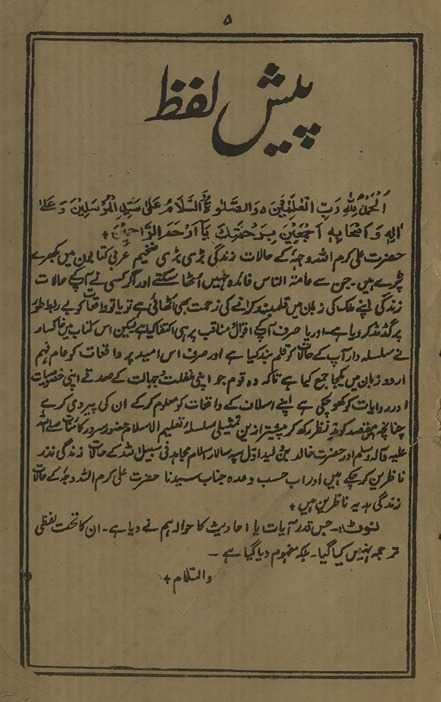 ۵
پیش لفظ
اَلْحَمْدُ لِلّٰهِ رَبِّ الْعٰلَمِيْنَ ہ وَالصَّلٰوةُ وَالسَّلَامُ عَلٰى سَيِّدِ الْمُرْسَلِيْنَ وَ عَلٰى
اٰلِهٖ وَ اَصْحَابِهٖ اَجْمَعِيْنَ بِرَحْمَتِكَ يَا اَرْحَمَ الرَّاحِمِيْنَ +
حضرت علی کرم اللہ وجہہ کے حالات زندگی بڑی بڑی ضخیم عربی کتابوں میں بکھرے
پڑے ہیں۔ جن سے عامۃ الناس فائدہ نہیں اُٹھا سکتے اور اگر کسی نے آپکے حالات
زندگی اپنے ملک کی زبان میں قلمبند کرانے کی زحمت بھی اُٹھائی ہے تو یا تو واقعات کو بے ربط طور
پر گڈ مڈ کر دیا ہے۔ اور یا صرف آپکے اقوال و مناقب پر ہی اکتفا کیا ہے لیکن اس کتاب میں خاکسار
نے سلسلہ وار آپ کے حالات کو قلم بند کیا ہے اور صرف اس امید پر واقعات کو عام فہم
اردو زبان میں یکجا جمع کیا ہے تاکہ وہ قوم جو اپنی غفلت و جہالت کے صدقے اپنی خصوصیات
اور روایات کو کھو چکی ہے اپنے اسلاف کے واقعات کو معلوم کرکے ان کی پیروی کرے
چنانچہ مقصد کو مدِ نظر رکھ کر پیشتر ازیں سلسلہ تعلیم الاسلام حضور سرور کائنات صلے اللہ
علیہ و آلہ وسلم اور حضرت خالد بن ولید اول سپہ سالار اسلام مجاہد فی سبیل اللہ کے حالات زندگی نذر
ناظرین کر چکے ہیں اور اب حسب وعدہ جناب سیدنا حضرت علی کرم اللہ وجہہ کے حالات
زندگی ہدیہ ناظرین ہیں +
نوٹ:۔ جس قدر آیات یا احادیث کا حوالہ ہم نے دیا ہے۔ ان کا تحت لفظی
ترجمہ نہیں کیا گیا۔ بلکہ مفہوم دیا گیا ہے۔
والسّلام +